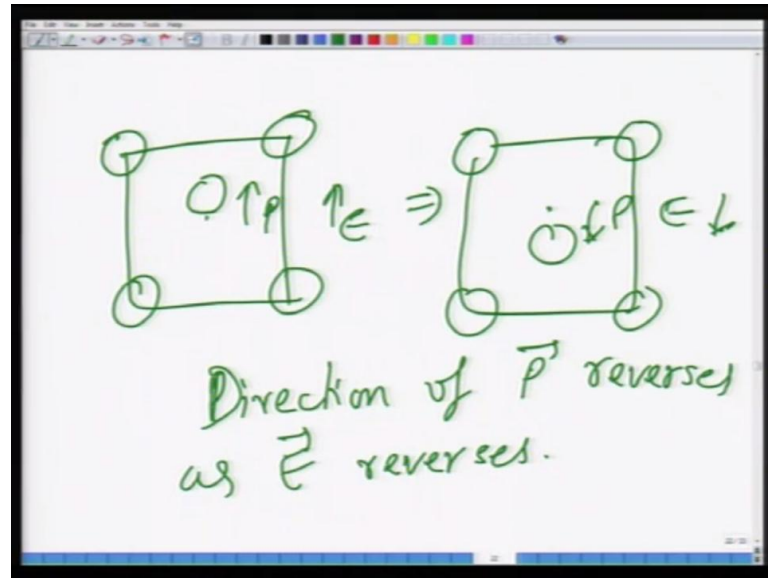 File Edit View Insert Actions Tools Help
↑P ↑E ⇒ ↓P E↓
Direction of P⃗ reverses
as E⃗ reverses.